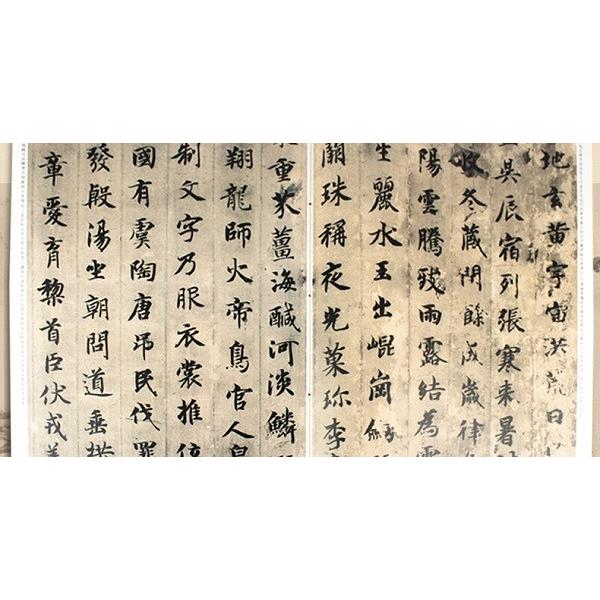 地玄黄宇宙洪荒日
昃辰宿列張寒来暑
收冬藏閏餘成歲律
陽雲騰致雨露結為
生麗水玉出崐崗
闕珠稱夜光菓珎李
重芥薑海醎河淡鱗
翔龍師火帝鳥官人皇
制文字乃服衣裳推位
國有虞陶唐吊民伐罪
發殷湯坐朝問道垂拱
章愛育黎首臣伏戎羌